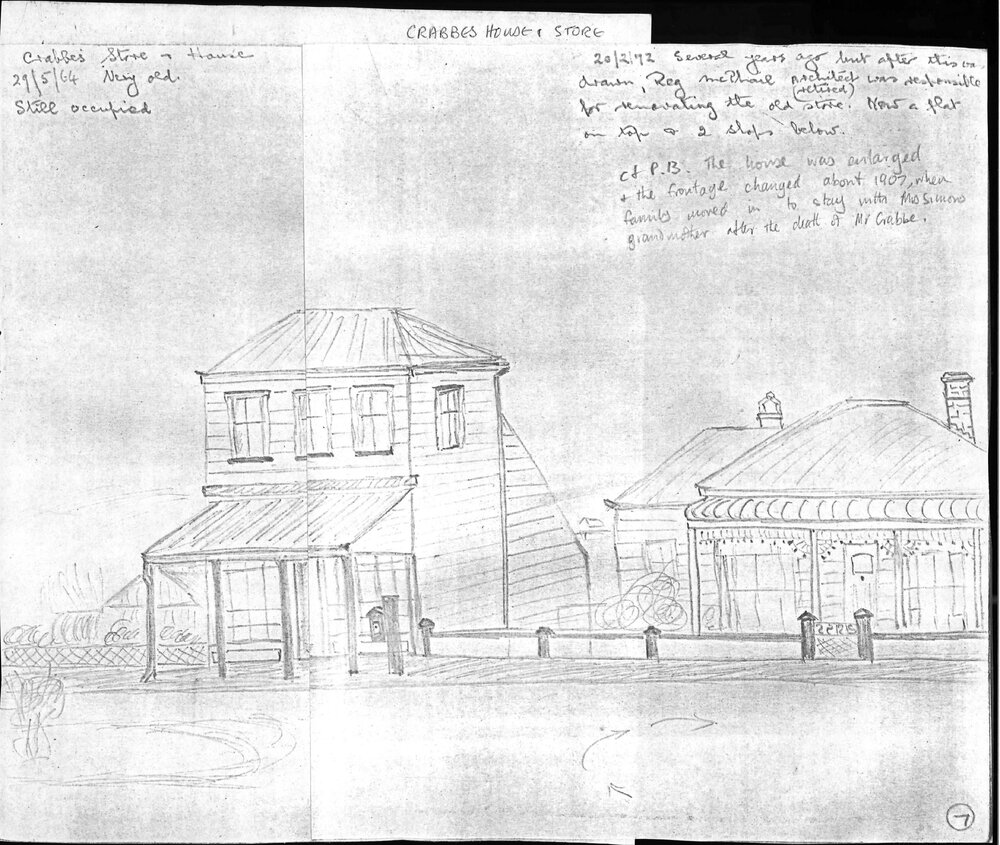 CRABBES HOUSE & STORE
Crabbe's Store & House
29/5/64 Very old.
Still occupied
20/2/72 Several years ago but after this was
drawn, Reg McPhail architect was responsible
(retired)
for renovating the old store. Now a flat
on top & 2 shops below.
cf P.B. The house was enlarged
& the frontage changed about 1907, when
family moved in to stay with Mrs Simons
grandmother after the death of Mr Crabbe.
7